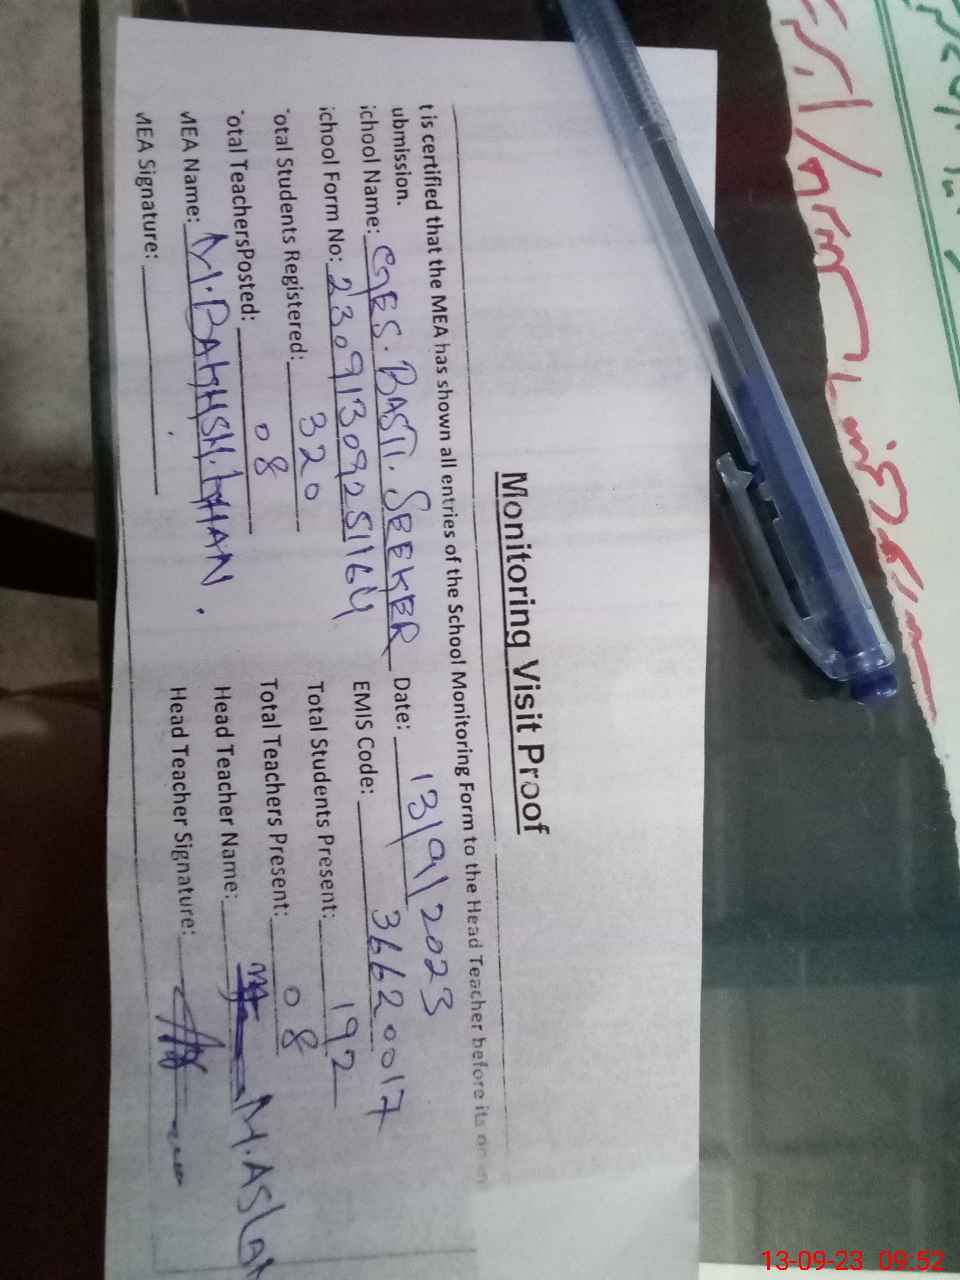 Monitoring Visit Proof
t is certified that the MEA has shown all entries of the School Monitoring Form to the Head Teacher before its
ubmission.
ichool Name: GES. BASTI. SEEKER Date: 13/9/2023
ichool Form No: 23091309251164 EMIS Code: 36620017
otal Students Registered: 320 Total Students Present: 192
otal TeachersPosted: 08 Total Teachers Present: 08
MEA Name: M. BAKHSH. KHAN. Head Teacher Name: M. ASLAM
MEA Signature: Head Teacher Signature:
13-09-23 09:52